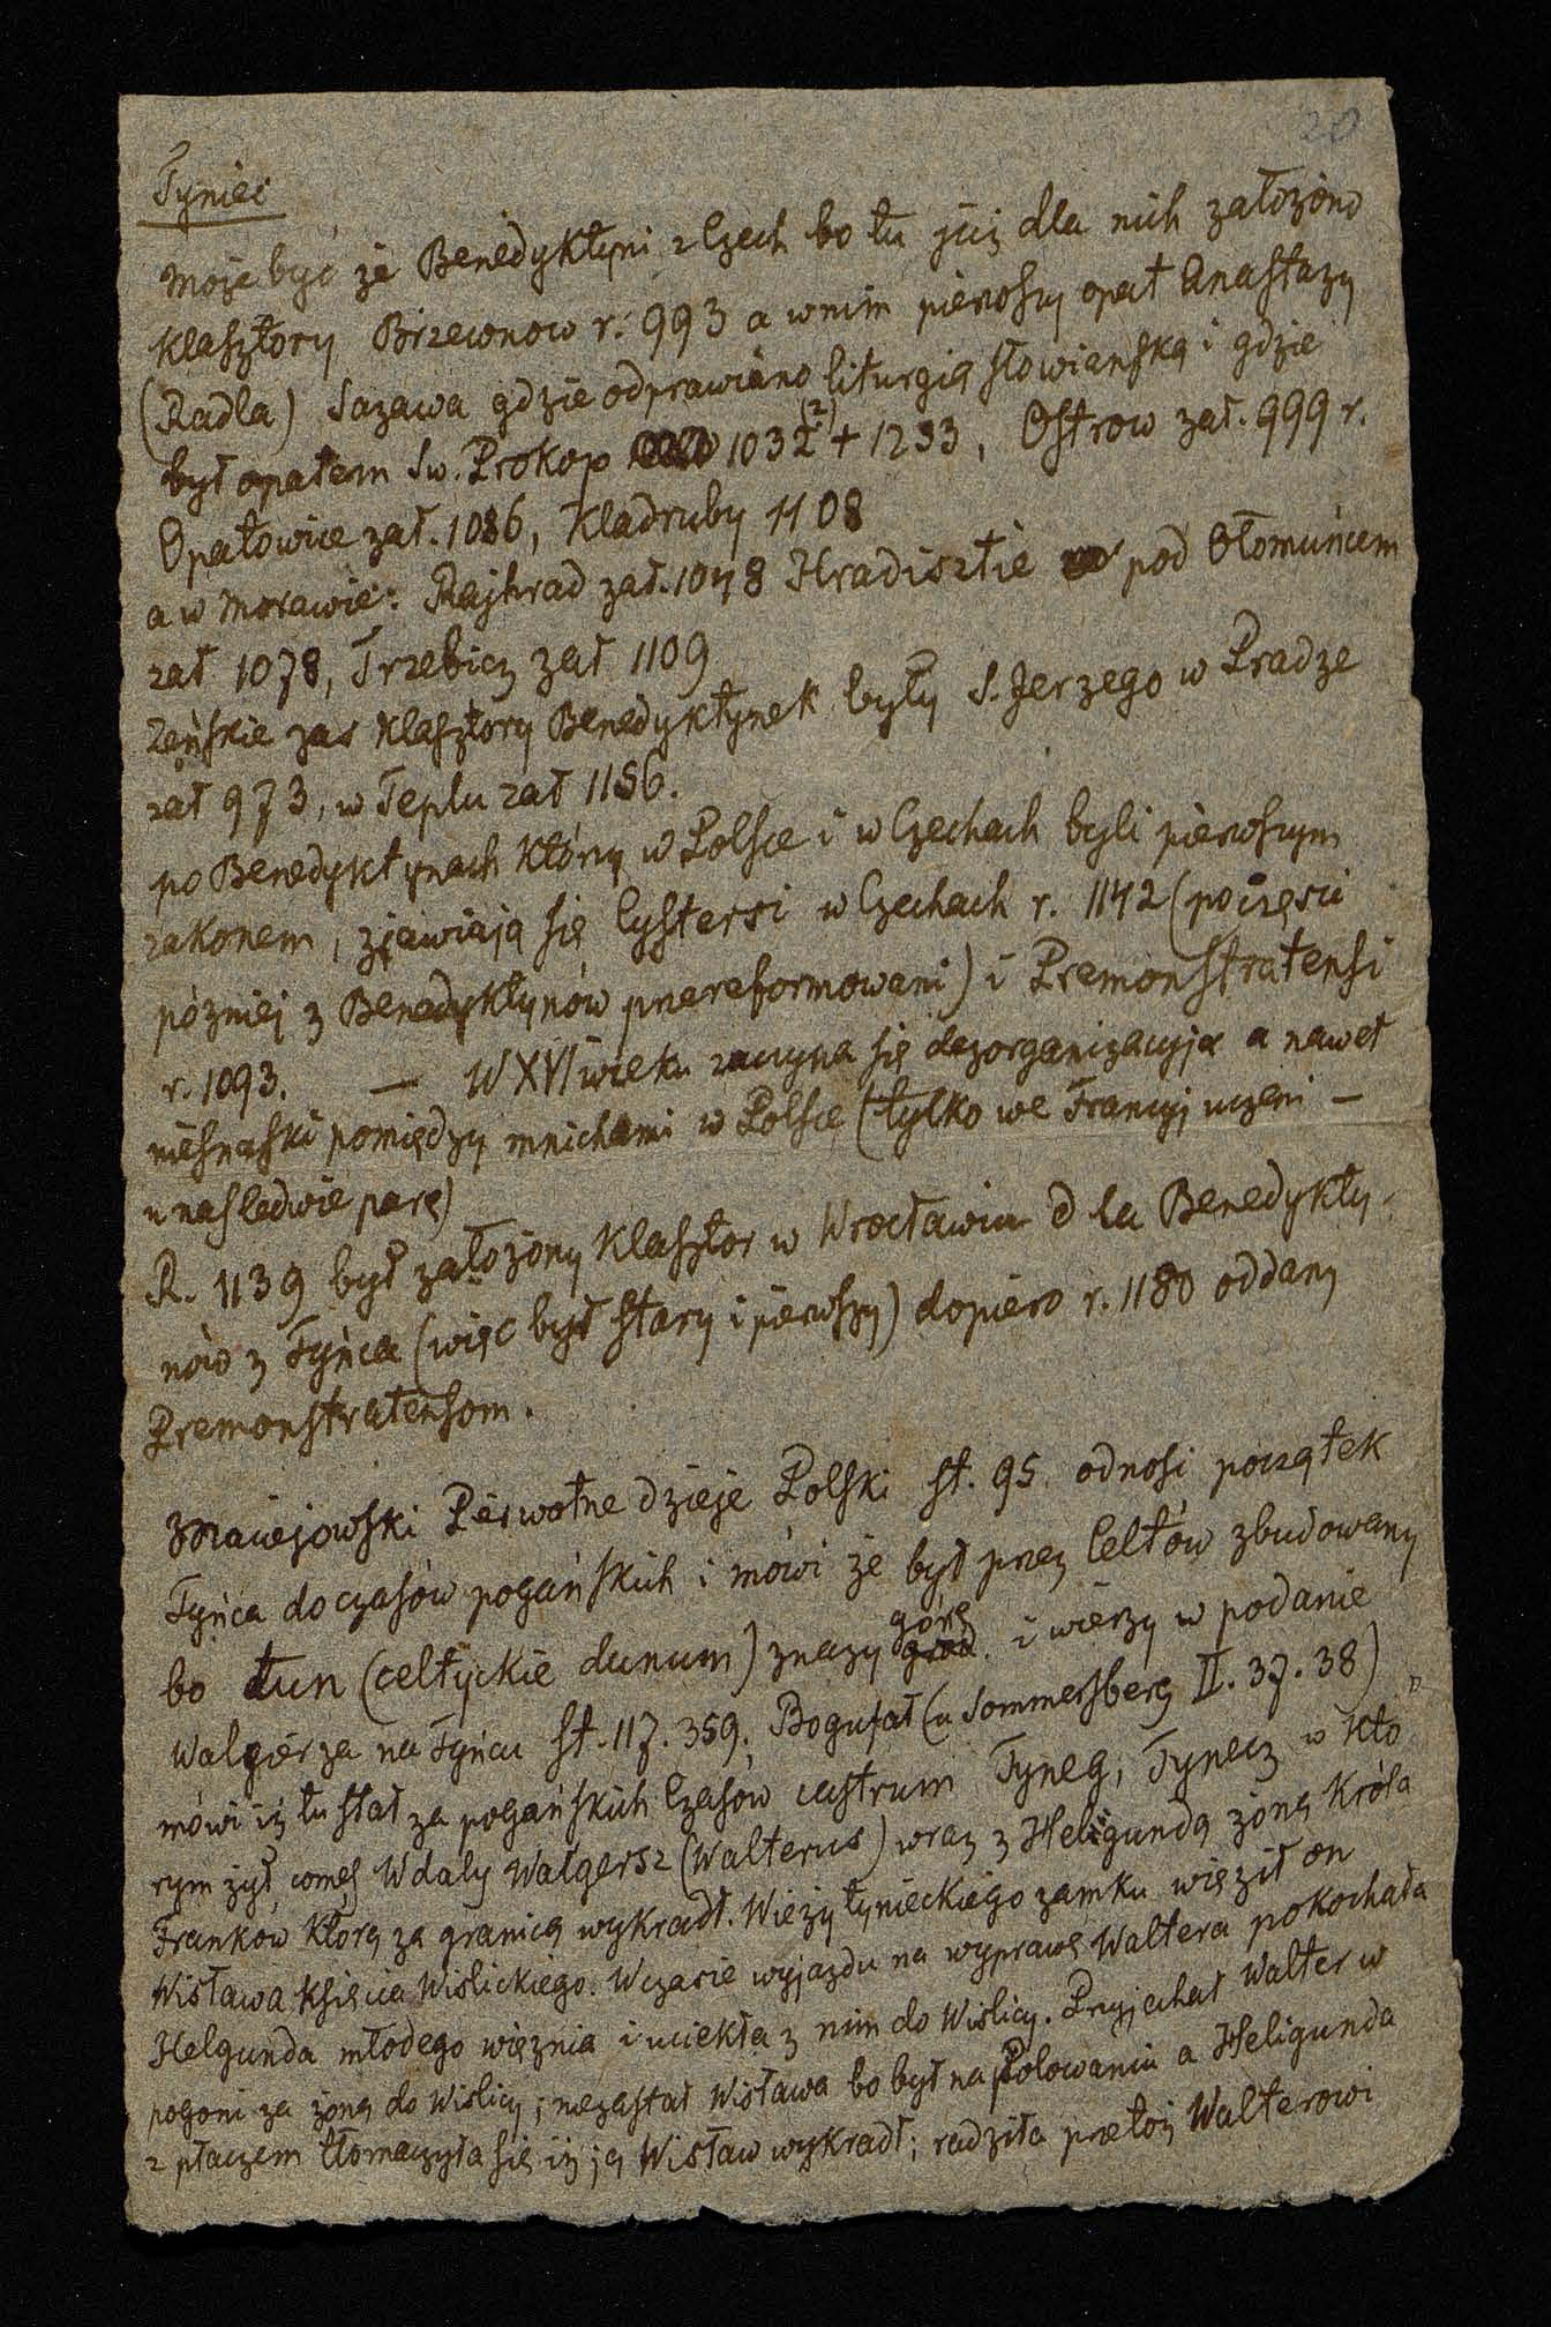 20
Tyniec
Może być że Benedyktyni z Czech bo tu już dla nich założono
Klasztory Brzewnow r. 993 a w nim pierwszy opat Anastazy
(Radla) Sazawa gdzie odprawiano liturgią słowiańską i gdzie
był opatem Sw. Prokop 1032 (?) + 1233, Ostrow zał. 999 r.
Opatowice zał. 1086, Kladruby 1108
a w Morawie: Rajhrad zał. 1048 Hradisztie pod Ołomuńcem
zał 1078, Trzebicz zał 1109
Zeńskie zas Klasztory Benedyktynek były S. Jerzego w Pradze
zał 973, w Teplu zał 1156.
po Benedyktynach którzy w Polsce i w Czechach byli pierwszym
zakonem, zjawiają się Cystersi w Czechach r. 1142 (po częsci
pózniej z Benedyktynów przereformowani) i Premonstratensi
r. 1093. — W XVI wieku zaczyna się dezorganizacyja a nawet
niesnaski pomiędzy mnichami w Polsce (tylko we Francyj uczeni —
u nas ledwie parę)
R. 1139 był założony Klasztor w Wrocławiu dla Benedykty-
nów z Tyńca (więc był stary i pierwszy) dopiero r. 1180 oddany
Premonstratensom.
Maciejowski Pierwotne dzieje Polski st. 95. odnosi początek
Tyńca do czasów pogańskich i mówi że był przez Celtów zbudowany
bo tun (celtyckie dunum) znaczy grod górę i wierzy w podanie
Walgierza na Tyńcu st. 117. 359. Bogufał (u Sommersberg II. 37. 38)
mówi iż tu stał za pogańskich Czasów castrum Tyneg, Tynecz w kto-
rym żył comes Wdaly Walgersz (Walterus) wraz z Heligundą żoną Króla
Franków którą za granicą wykradł. W ieży tynieckiego zamku więził on
Wisława księcia Wislickiego. W czasie wyjazdu na wyprawę Waltera pokochała
Helgunda młodego więznia i uciekła z nim do Wislicy. Przyjechał Walter w
pogoni za żoną do Wislicy; niezastał Wisława bo był na Polowaniu a Heligunda
z płaczem tłomaczyła się iż ją Wisław wykradł; radziła przetoż Walterowi